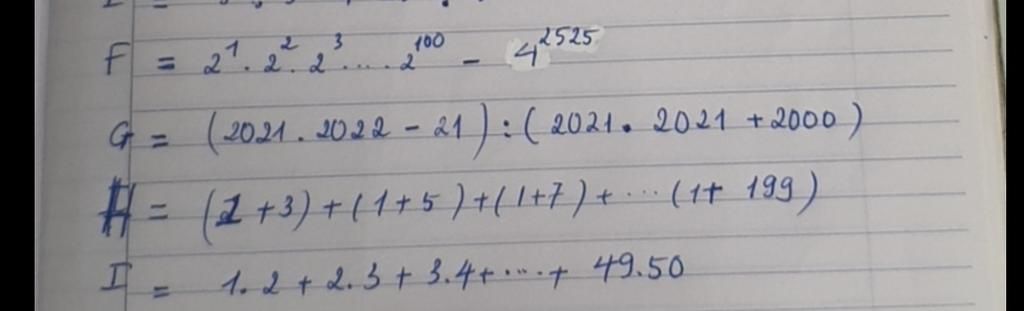 F = 2¹ . 2² . 2³ .... 2¹⁰⁰ - 4²⁵²⁵
G = (2021 . 2022 - 21) : (2021 . 2021 + 2000)
H = (1 + 3) + (1 + 5) + (1 + 7) + ... (1 + 199)
I = 1.2 + 2.3 + 3.4 + .... + 49.50